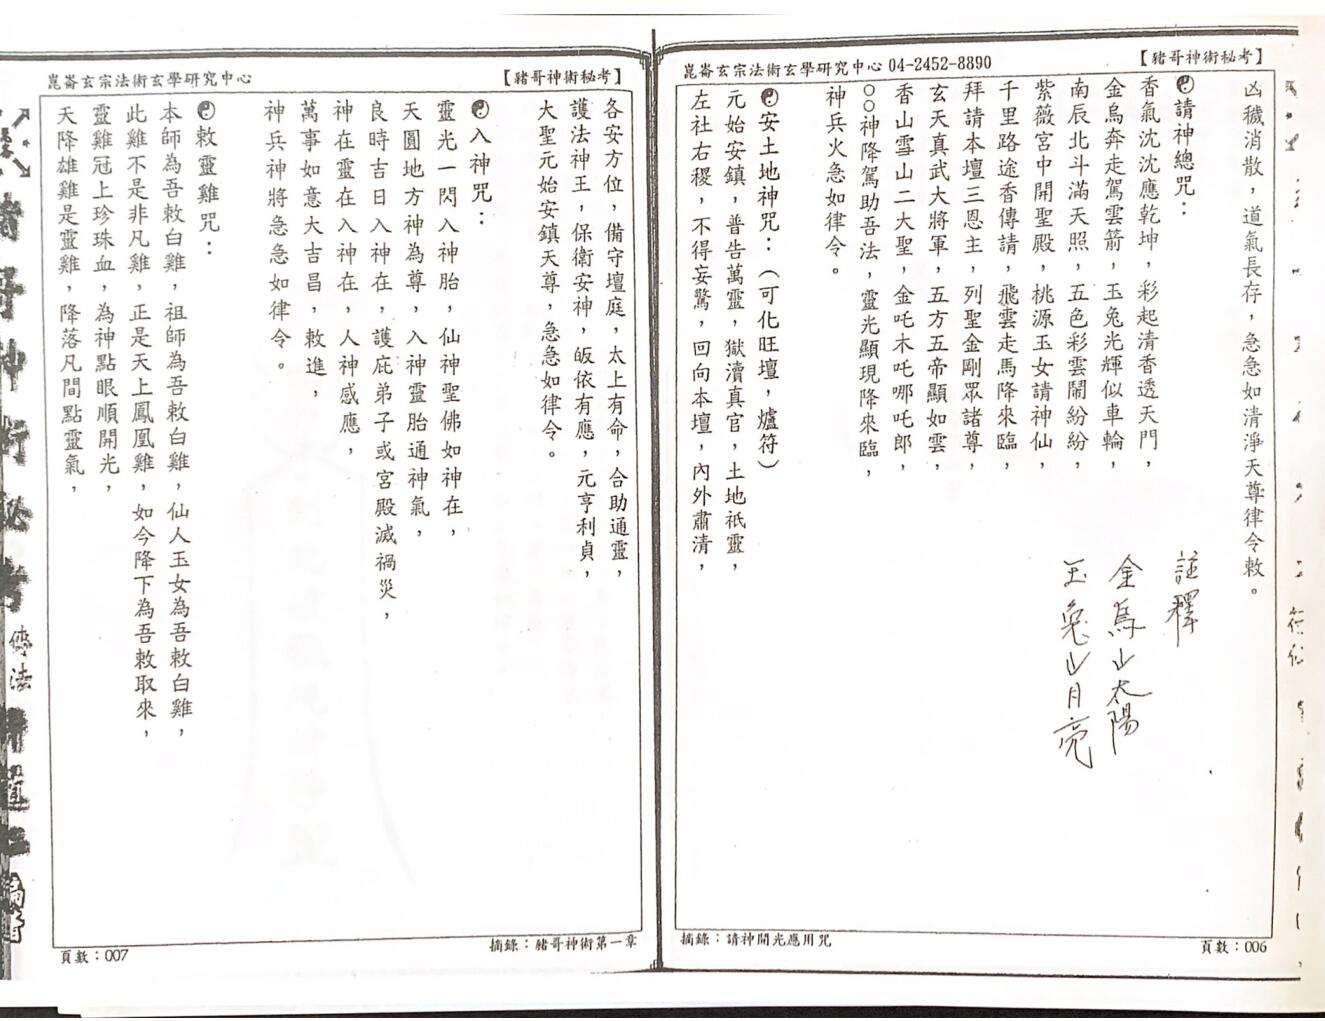 崑崙玄宗法術玄學研究中心 04-2452-8890
【豬哥神術秘考】
凶穢消散，道氣長存，急急如清淨天尊律令敕。
☯請神總咒：
香氣沈沈應乾坤，彩起清香透天門，
金烏奔走駕雲箭，玉兔光輝似車輪，
南辰北斗滿天照，五色彩雲鬧紛紛，
紫薇宮中開聖殿，桃源玉女請神仙，
千里路途香傳請，飛雲走馬降來臨，
拜請本壇三恩主，列聖金剛眾諸尊，
玄天真武大將軍，五方五帝顯如雲，
香山雪山二大聖，金吒木吒哪吒郎，
○○神降駕助吾法，靈光顯現降來臨，
神兵火急如律令。
☯安土地神咒：（可化旺壇，爐符）
元始安鎮，普告萬靈，獄瀆真官，土地祇靈，
左社右稷，不得妄驚，回向本壇，內外肅清，
註釋
金烏山太陽
玉兔山月亮
摘錄：請神開光應用咒
頁數：006
崑崙玄宗法術玄學研究中心
【豬哥神術秘考】
各安方位，備守壇庭，太上有命，合助通靈，
護法神王，保衛安神，皈依有應，元亨利貞，
大聖元始安鎮天尊，急急如律令。
☯入神咒：
靈光一閃入神胎，仙神聖佛如神在，
天圓地方神為尊，入神靈胎通神氣，
良時吉日入神在，護庇弟子或宮殿滅禍災，
神在靈在入神在，人神感應，
萬事如意大吉昌，敕進，
神兵神將急急如律令。
☯敕靈雞咒：
本師為吾敕白雞，祖師為吾敕白雞，仙人玉女為吾敕白雞，
此雞不是非凡雞，正是天上鳳凰雞，如今降下為吾敕取來，
靈雞冠上珍珠血，為神點眼順開光，
天降雄雞是靈雞，降落凡間點靈氣，
摘錄：豬哥神術第一章
頁數：007